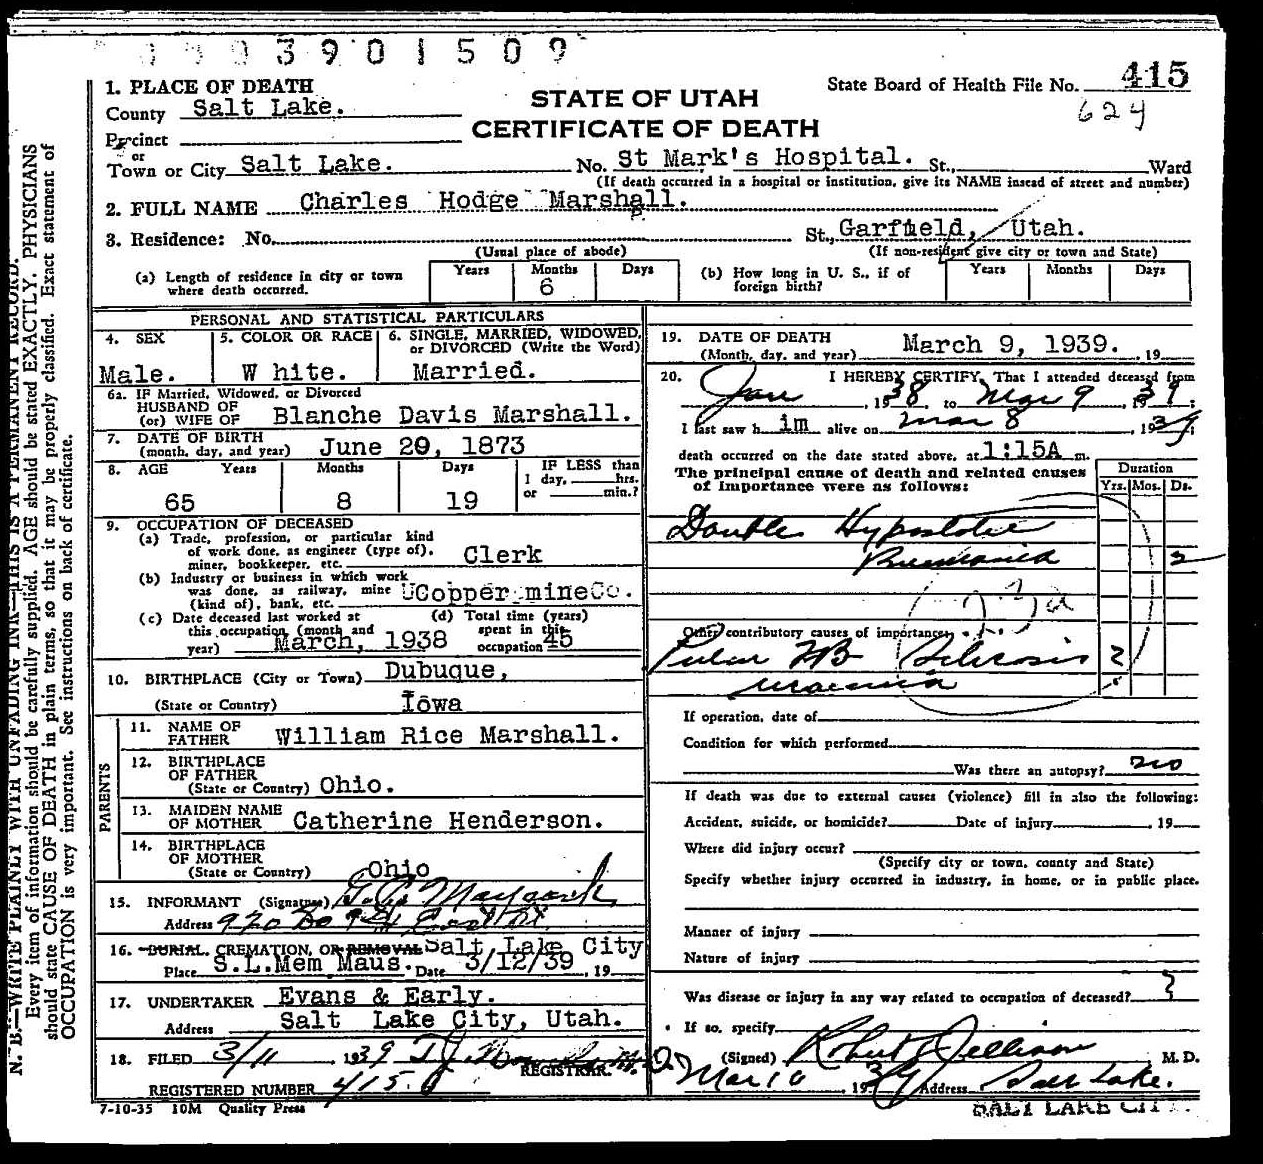 3901509
1. PLACE OF DEATH
State Board of Health File No. 415
County Salt Lake.
STATE OF UTAH
624
CERTIFICATE OF DEATH
Precinct
or
Town or City Salt Lake. No. St Mark's Hospital. St., Ward
(If death occurred in a hospital or institution, give its NAME instead of street and number)
2. FULL NAME Charles Hodge Marshall.
3. Residence: No. St., Garfield, Utah.
(Usual place of abode) (If non-resident give city or town and State)
(a) Length of residence in city or town where death occurred. Years Months 6 Days
(b) How long in U. S., if of foreign birth? Years Months Days
PERSONAL AND STATISTICAL PARTICULARS
4. SEX Male.
5. COLOR OR RACE W hite.
6. SINGLE, MARRIED, WIDOWED, or DIVORCED (Write the Word) Married.
6a. IF Married, Widowed, or Divorced
HUSBAND OF
(or) WIFE OF Blanche Davis Marshall.
7. DATE OF BIRTH
(month, day, and year) June 20, 1873
8. AGE Years 65 Months 8 Days 19
IF LESS than
1 day, hrs.
or min.?
9. OCCUPATION OF DECEASED
(a) Trade, profession, or particular kind
of work done, as engineer (type of),
miner, bookkeeper, etc. Clerk
(b) Industry or business in which work
was done, as railway, mine
(kind of), bank, etc. UCopper mineCo.
(c) Date deceased last worked at
this occupation (month and
year) March, 1938
(d) Total time (years)
spent in this
occupation 45
10. BIRTHPLACE (City or Town) Dubuque,
(State or Country) Iowa
PARENTS
11. NAME OF
FATHER William Rice Marshall.
12. BIRTHPLACE
OF FATHER
(State or Country) Ohio.
13. MAIDEN NAME
OF MOTHER Catherine Henderson.
14. BIRTHPLACE
OF MOTHER
(State or Country) Ohio
15. INFORMANT (Signature) Maycock
Address 920 So 9th East St.
16. BURIAL, CREMATION, OR REMOVAL Salt Lake City
Place S.L.Mem Maus. Date 3/12/39, 19
17. UNDERTAKER Evans & Early.
Address Salt Lake City, Utah.
18. FILED 3/11, 1939
REGISTRAR.
REGISTERED NUMBER 415
7-10-35 10M Quality Press
19. DATE OF DEATH
(Month, day, and year) March 9, 1939. , 19
20. I HEREBY CERTIFY, That I attended deceased from
Jan, 1938 to Mar 9, 1939;
I last saw h im alive on Mar 8, 1939;
death occurred on the date stated above, at 1:15A m.
The principal cause of death and related causes
of importance were as follows:
Duration
Yrs. Mos. Ds.
Double Hypostatic
Pneumonia 2
Other contributory causes of importance:
Pulm TB Sclerosis ?
Uraemia
If operation, date of
Condition for which performed
Was there an autopsy? no
If death was due to external causes (violence) fill in also the following:
Accident, suicide, or homicide? Date of injury , 19
Where did injury occur?
(Specify city or town, county and State)
Specify whether injury occurred in industry, in home, or in public place.
Manner of injury
Nature of injury
Was disease or injury in any way related to occupation of deceased? ?
If so, specify
(Signed) Robert Jellison M. D.
Mar 10, 1939 Address Salt Lake.
SALT LAKE CITY.
N. B.—WRITE PLAINLY WITH UNFADING INK—THIS IS A PERMANENT RECORD.
Every item of information should be carefully supplied. AGE should be stated EXACTLY. PHYSICIANS
should state CAUSE OF DEATH in plain terms, so that it may be properly classified. Exact statement of
OCCUPATION is very important. See instructions on back of certificate.